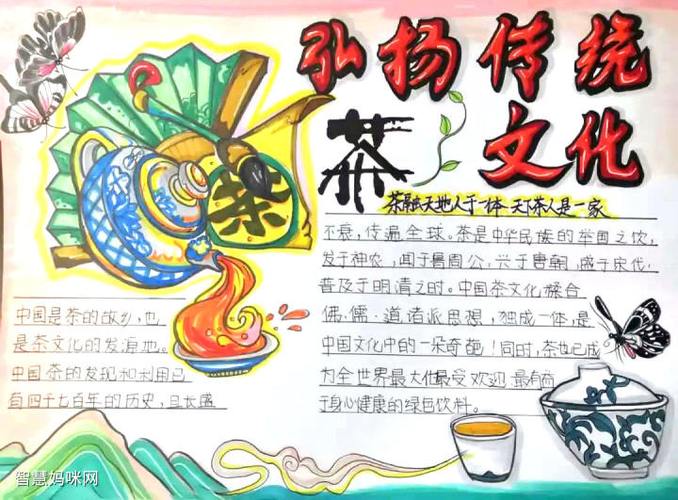 弘扬传统
茶
文化
茶
茶融天地人于一体 天下茶人是一家
中国是茶的故乡,也
是茶文化的发源地。
中国茶的发现和利用已
有四千七百年的历史,且长盛
不衰,传遍全球。茶是中华民族的举国之饮,
发于神农,闻于鲁周公,兴于唐朝,盛于宋代,
普及于明清之时。中国茶文化糅合
佛·儒·道诸派思想,独成一体,是
中国文化中的一朵奇葩!同时,茶也已成
为全世界最大众最受欢迎 最有益
于身心健康的绿色饮料。
智慧妈咪网